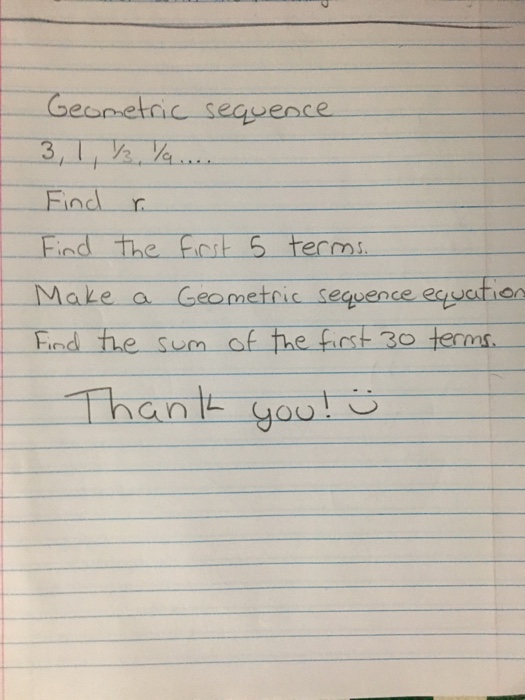 Geometric sequence
3, 1, 1/3, 1/9....
Find r.
Find the first 5 terms.
Make a Geometric sequence equation
Find the sum of the first 30 terms.
Thank you! Ü